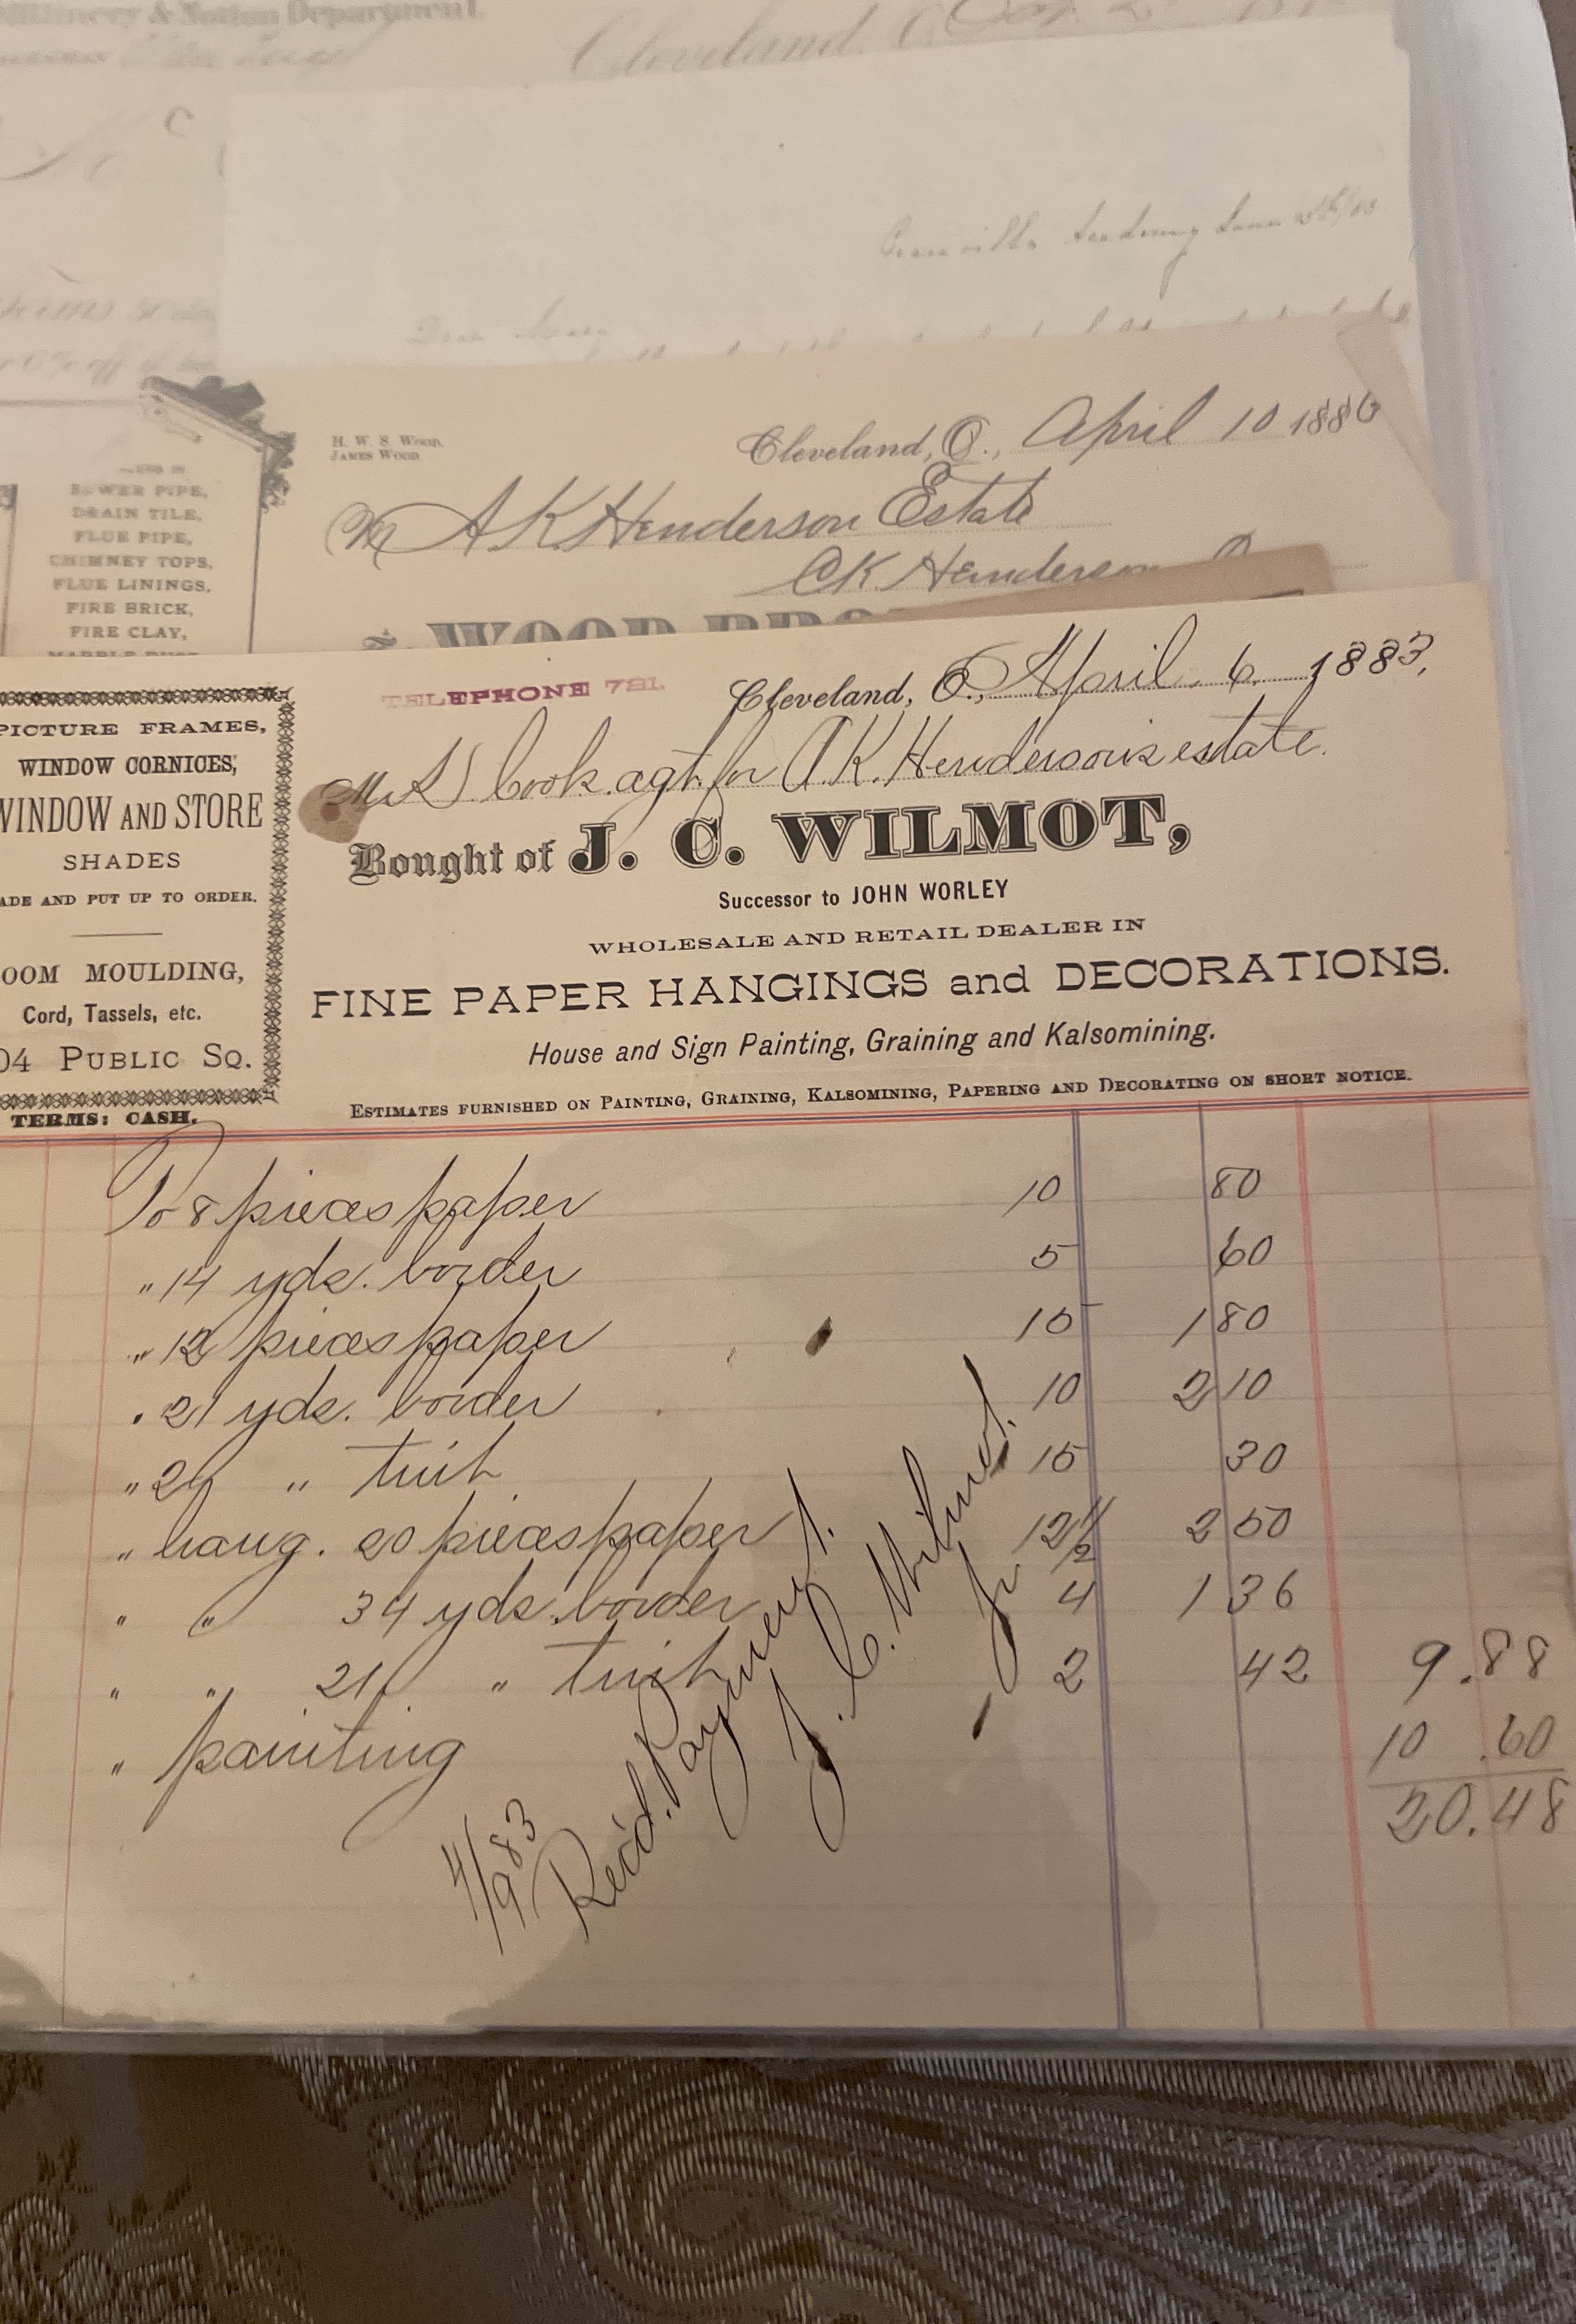 Millinery & Notion Department.
Cleveland, O
Granville Academy June
Dear
H. W. S. Wood,
James Wood.
Cleveland, O., April 10 1886
M A K Henderson Estate
C K Henderson
SEWER PIPE,
DRAIN TILE,
FLUE PIPE,
CHIMNEY TOPS,
FLUE LININGS,
FIRE BRICK,
FIRE CLAY,
MARBLE DUST
& WOOD BRO
TELEPHONE 721.
Cleveland, O., April. 6. 1883.
Mr S. Cook. agt. for A. K. Henderson's estate.
Bought of J. C. WILMOT,
Successor to JOHN WORLEY
WHOLESALE AND RETAIL DEALER IN
FINE PAPER HANGINGS and DECORATIONS.
House and Sign Painting, Graining and Kalsomining.
ESTIMATES FURNISHED ON PAINTING, GRAINING, KALSOMINING, PAPERING AND DECORATING ON SHORT NOTICE.
PICTURE FRAMES,
WINDOW CORNICES,
WINDOW AND STORE
SHADES
ADE AND PUT UP TO ORDER.
OOM MOULDING,
Cord, Tassels, etc.
04 PUBLIC SQ.
TERMS: CASH.
To 8 pieces paper 10 80
" 14 yds. border 5 60
" 12 pieces paper 15 1 80
" 21 yds. border 10 2 10
" 21 " 15 30
" hang. 20 pieces paper 12 1/2 2 50
" " 34 yds. border 4 1 36
" " 21 " 2 42 9.88
" painting 10.60
20.48
4/9 83
Rec'd. Payment.
J. C. Wilmot.